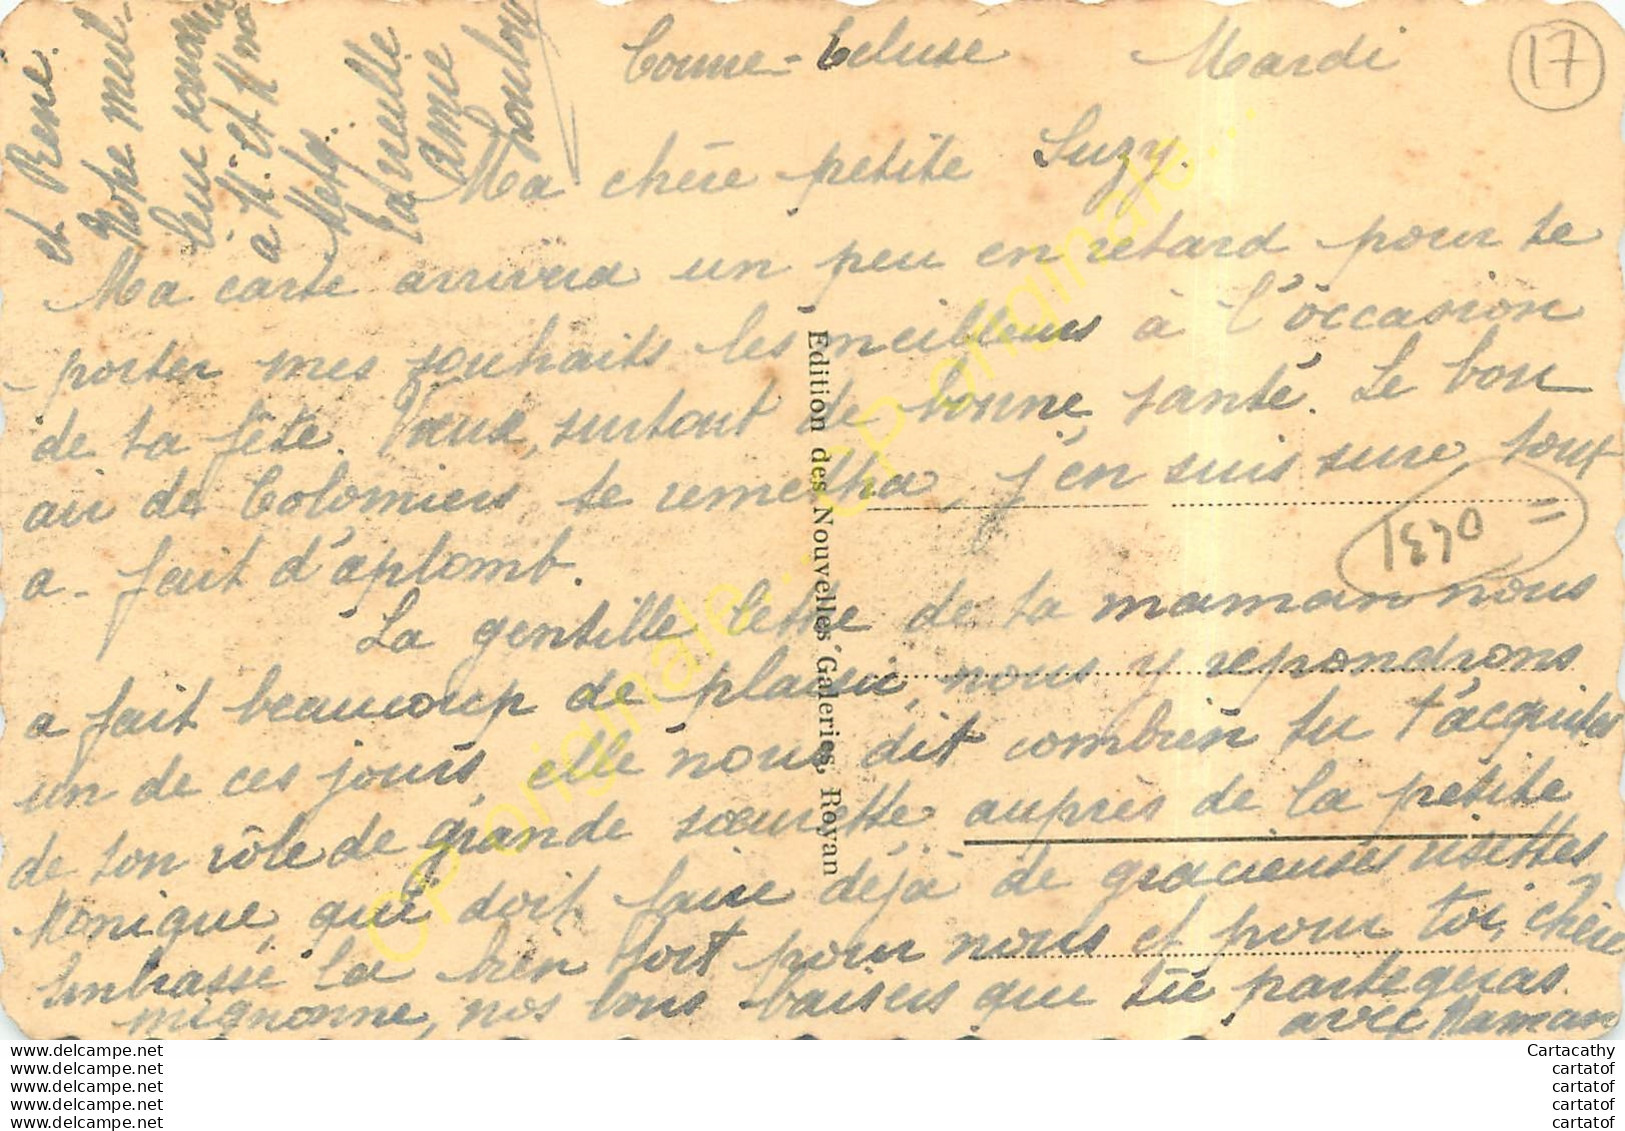 Mardi
17
Ma chère petite Suzy.
Ma carte arrivera un peu en retard pour te
porter mes souhaits les meilleurs à l'occasion
de ta fête. Vœux, surtout de bonne santé. Le bon
air de Colomiers te remettra, j'en suis sure, tout
a-fait d'aplomb.
La gentille lettre de ta maman nous
a fait beaucoup de plaisir, nous y repondrons
un de ces jours, elle nous dit combien tu t'acquittes
de ton rôle de grande sœurette auprès de la petite
Monique, qui doit faire déjà de gracieuses risettes
Embrasse la bien fort pour nous et pour toi, chère
mignonne, nos bons baisers que tu partageras
avec Maman
et René.
Notre meil-
leur souvenir
à M. et Mme
Ta vieille
amie
Edition des Nouvelles Galeries, Royan
CP originale...
CP originale...
www.delcampe.net
www.delcampe.net
www.delcampe.net
www.delcampe.net
www.delcampe.net
Cartacathy
cartatof
cartatof
cartatof
cartatof